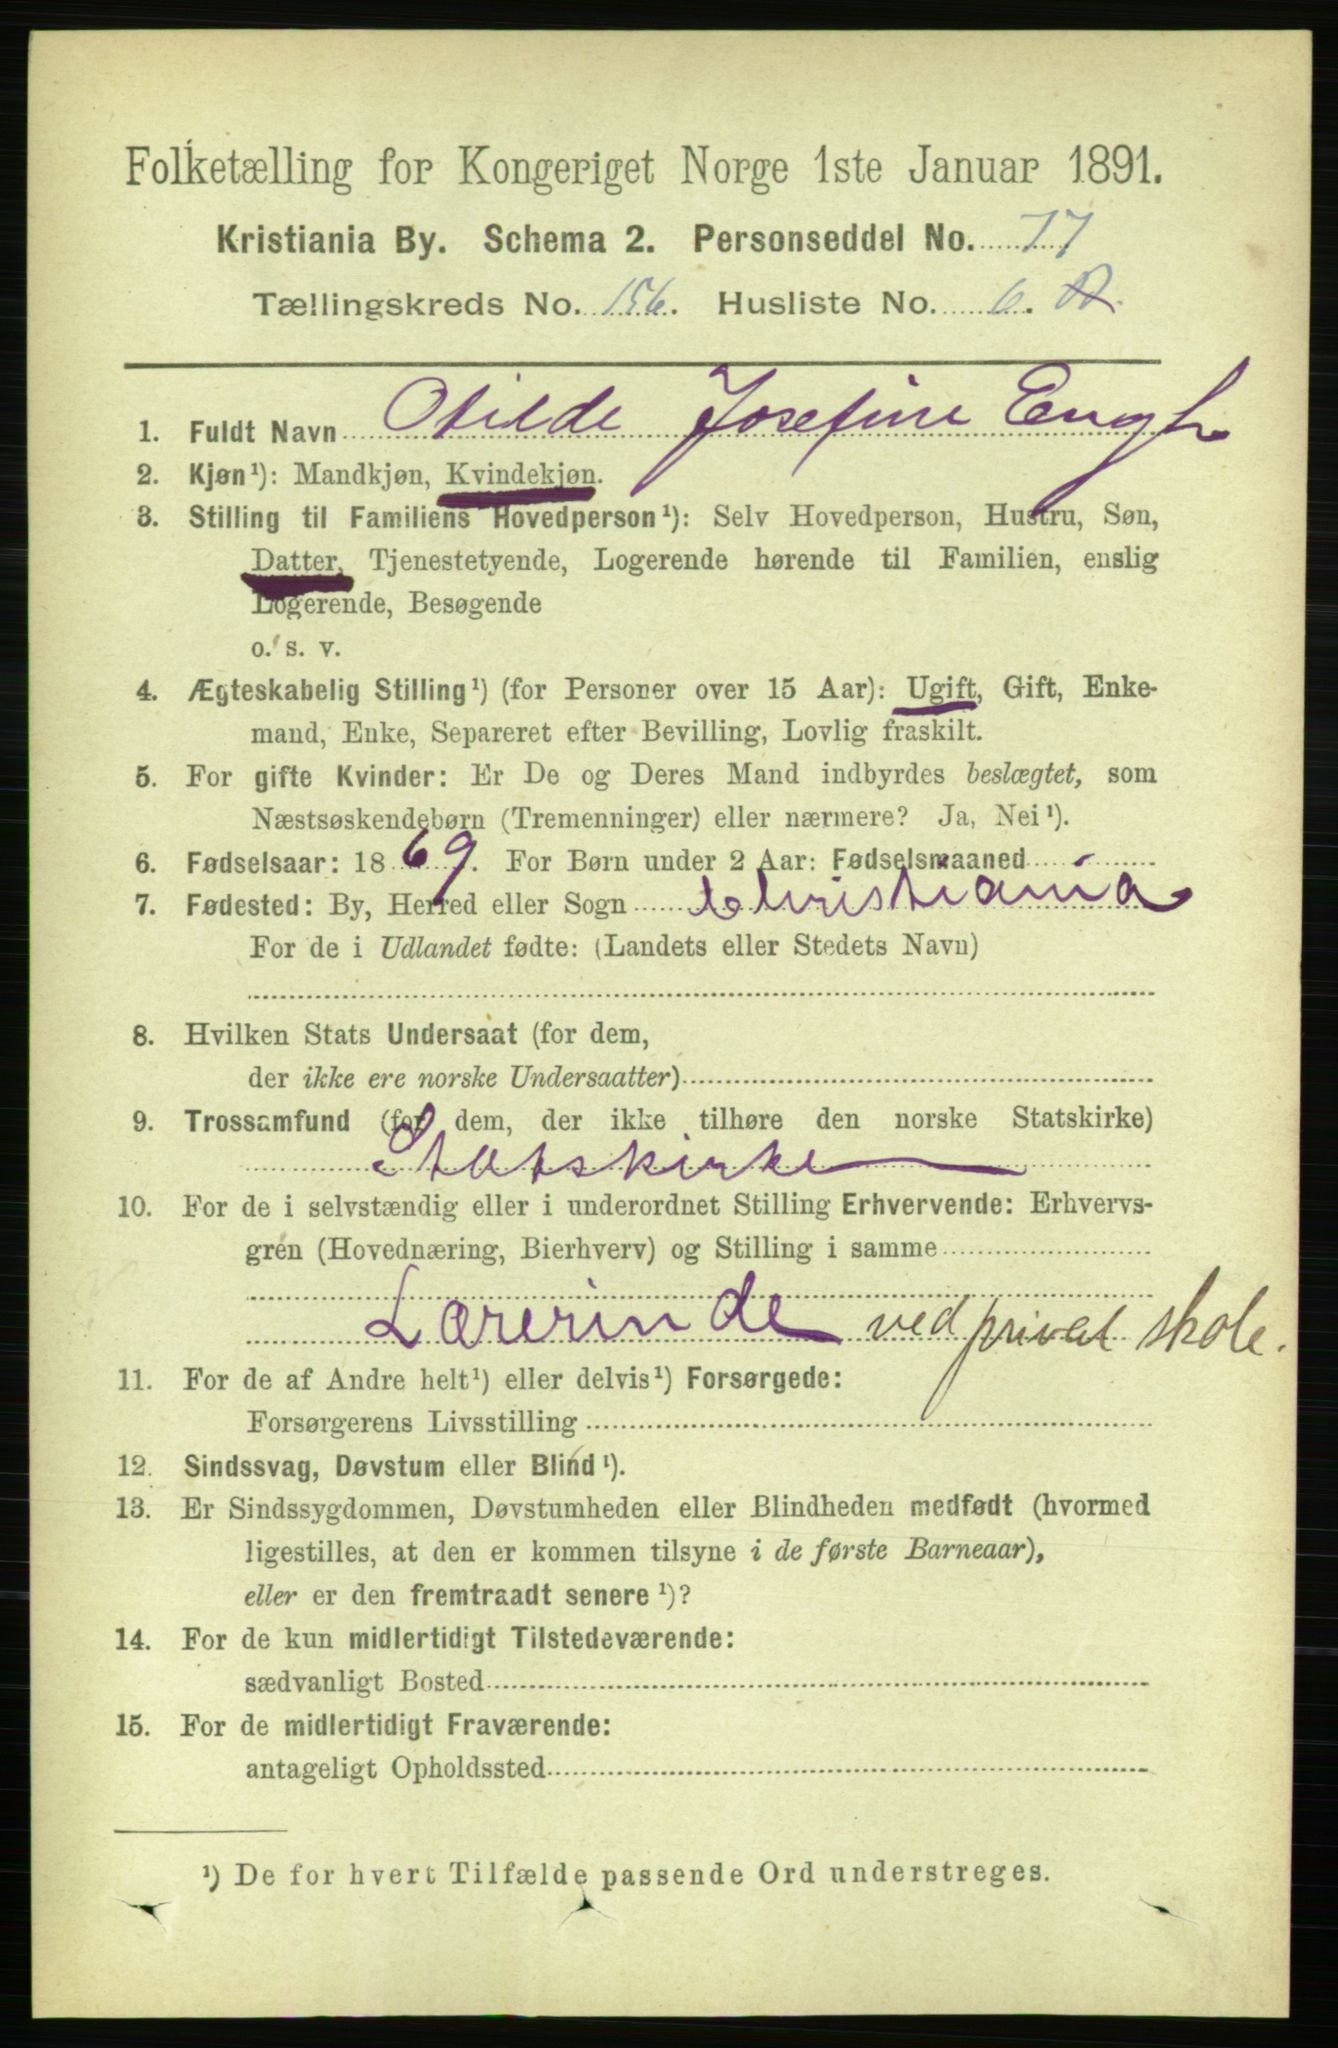 Folketælling for Kongeriget Norge 1ste Januar 1891.
Kristiania By. Schema 2. Personseddel No. 77
Tællingskreds No. 156. Husliste No. 6. A.
1. Fuldt Navn Otilde Josefine Engh
2. Kjøn¹): Mandkjøn, Kvindekjøn.
3. Stilling til Familiens Hovedperson¹): Selv Hovedperson, Hustru, Søn,
Datter, Tjenestetyende, Logerende hørende til Familien, enslig
Logerende, Besøgende
o. s. v.
4. Ægteskabelig Stilling¹) (for Personer over 15 Aar): Ugift, Gift, Enke-
mand, Enke, Separeret efter Bevilling, Lovlig fraskilt.
5. For gifte Kvinder: Er De og Deres Mand indbyrdes beslægtet, som
Næstsøskendebørn (Tremenninger) eller nærmere? Ja, Nei¹).
6. Fødselsaar: 1869. For Børn under 2 Aar: Fødselsmaaned
7. Fødested: By, Herred eller Sogn Christiania
For de i Udlandet fødte: (Landets eller Stedets Navn)
8. Hvilken Stats Undersaat (for dem,
der ikke ere norske Undersaatter)
9. Trossamfund (for dem, der ikke tilhøre den norske Statskirke)
Statskirke
10. For de i selvstændig eller i underordnet Stilling Erhvervende: Erhvervs-
gren (Hovednæring, Bierhverv) og Stilling i samme
Lærerinde ved privat skole.
11. For de af Andre helt¹) eller delvis¹) Forsørgede:
Forsørgerens Livsstilling
12. Sindssvag, Døvstum eller Blind¹).
13. Er Sindssygdommen, Døvstumheden eller Blindheden medfødt (hvormed
ligestilles, at den er kommen tilsyne i de første Barneaar),
eller er den fremtraadt senere¹)?
14. For de kun midlertidigt Tilstedeværende:
sædvanligt Bosted
15. For de midlertidigt Fraværende:
antageligt Opholdssted
¹) De for hvert Tilfælde passende Ord understreges.